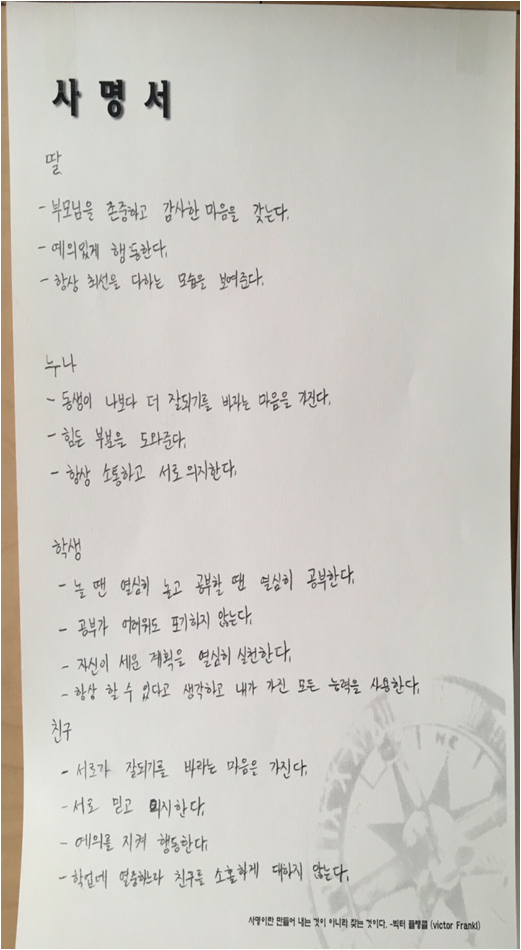 사명서
딸
- 부모님을 존중하고 감사한 마음을 갖는다.
- 예의있게 행동한다.
- 항상 최선을 다하는 모습을 보여준다.
누나
- 동생이 나보다 더 잘되기를 바라는 마음을 가진다.
- 힘든 부분을 도와준다.
- 항상 소통하고 서로 의지한다.
학생
- 놀 땐 열심히 놀고 공부할 땐 열심히 공부한다.
- 공부가 어려워도 포기하지 않는다.
- 자신이 세운 계획을 열심히 실천한다.
- 항상 할 수 있다고 생각하고 내가 가진 모든 능력을 사용한다.
친구
- 서로가 잘되기를 바라는 마음을 가진다.
- 서로 믿고 의지한다.
- 예의를 지켜 행동한다.
- 학업에 열중하느라 친구를 소홀하게 대하지 않는다.
NE
사명이란 만들어 내는 것이 아니라 찾는 것이다. -빅터 플랭클 (victor Frankl)